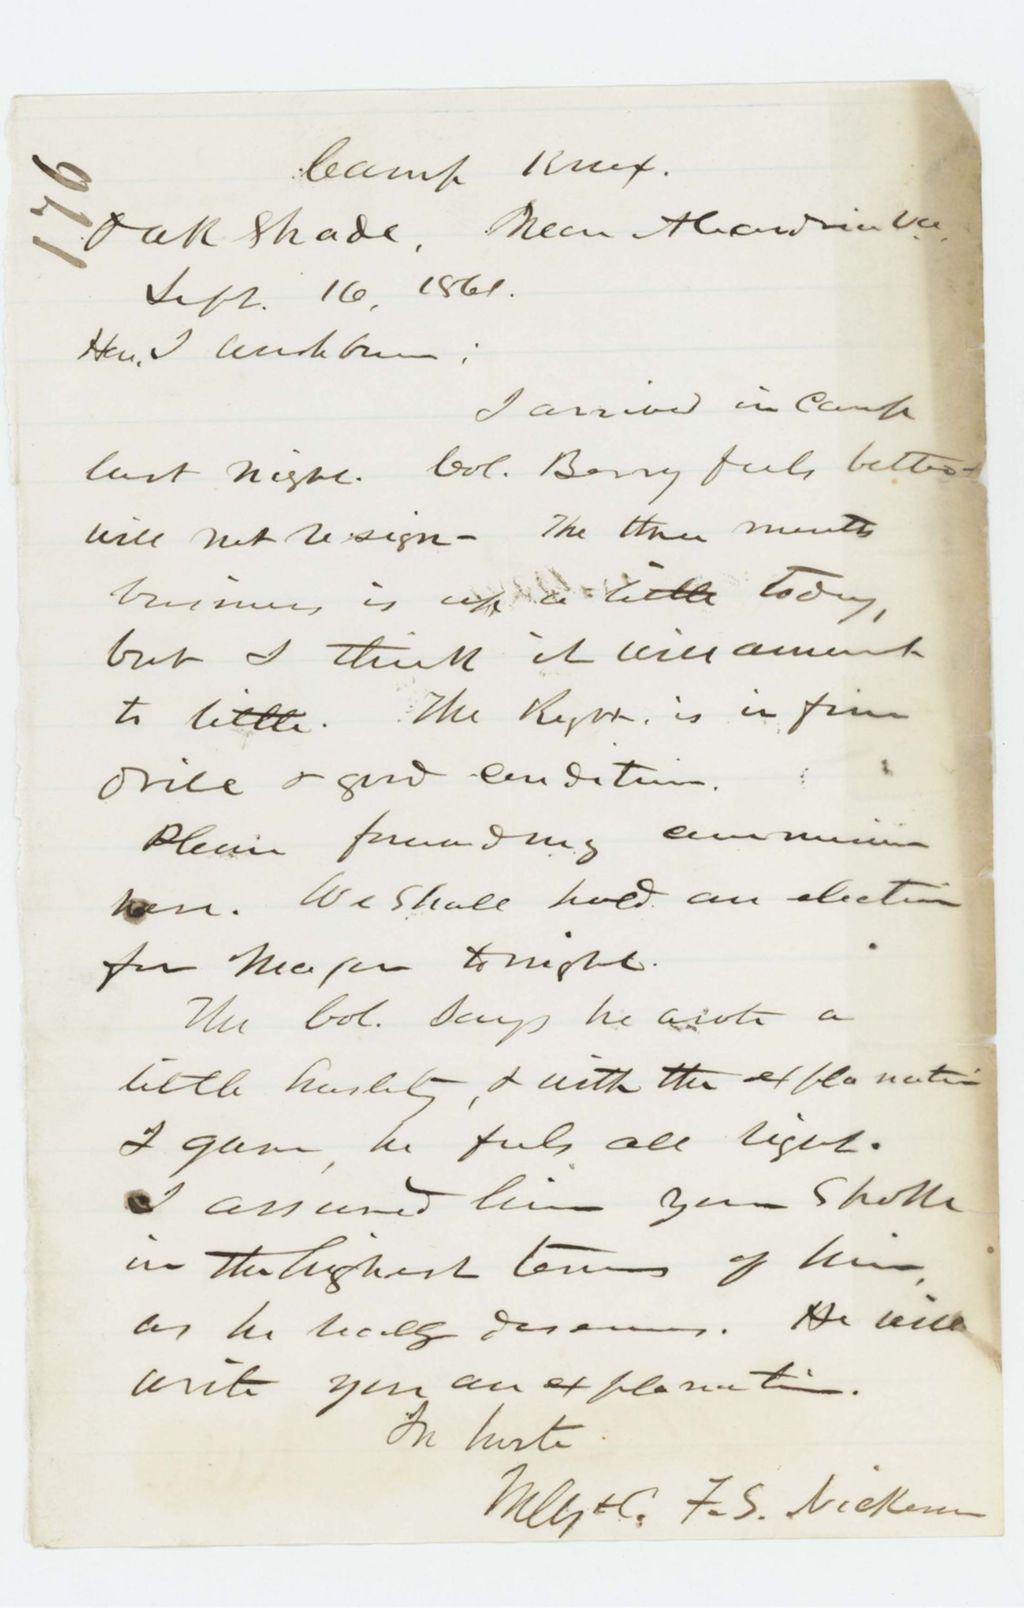 176
Camp Knox.
Oak Shade, Near Alexandria Va.
Sept. 16, 1861.
Hon. I Washburn :
I arrived in Camp
last night. Col. Berry feels better &
will not resign - The three months
business is up a little today,
but I think it will amount
to little. The Regt. is in fine
drill & good condition.
Please forward my commission
here. We shall hold an election
for Major tonight.
The Col. says he wrote a
little hastily, & with the explanation
I gave, he feels all right.
I assured him you spoke
in the highest terms of him,
as he really deserves. He will
write you an explanation.
In haste
F. S. Nickerson